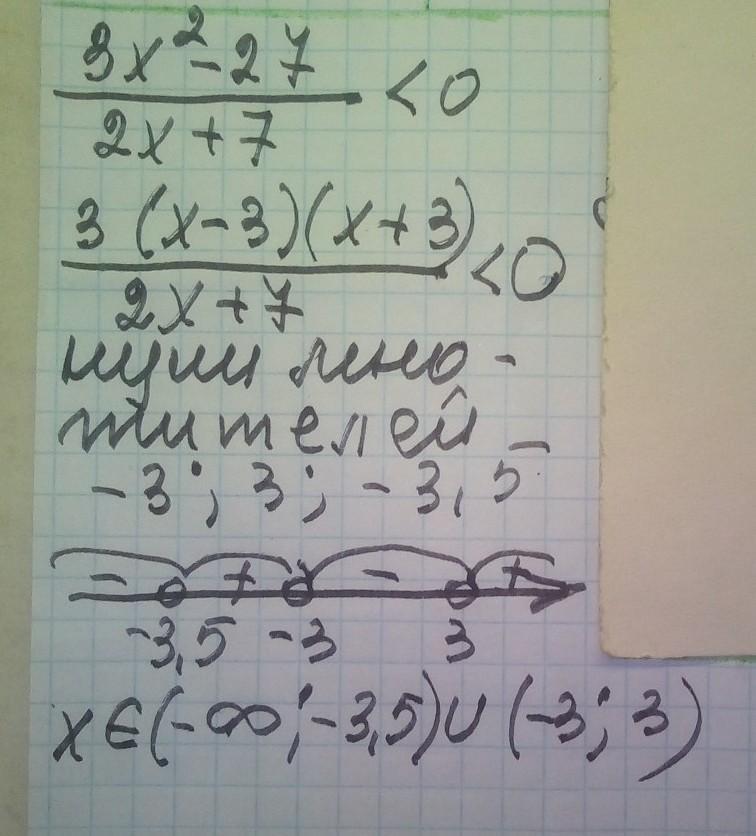 3x² - 27 / 2x + 7 < 0
3 (x - 3)(x + 3) / 2x + 7 < 0
нули мно-
жителей
-3; 3; -3,5
- + - +
-3,5 -3 3
x ∈ (-∞; -3,5) ∪ (-3; 3)